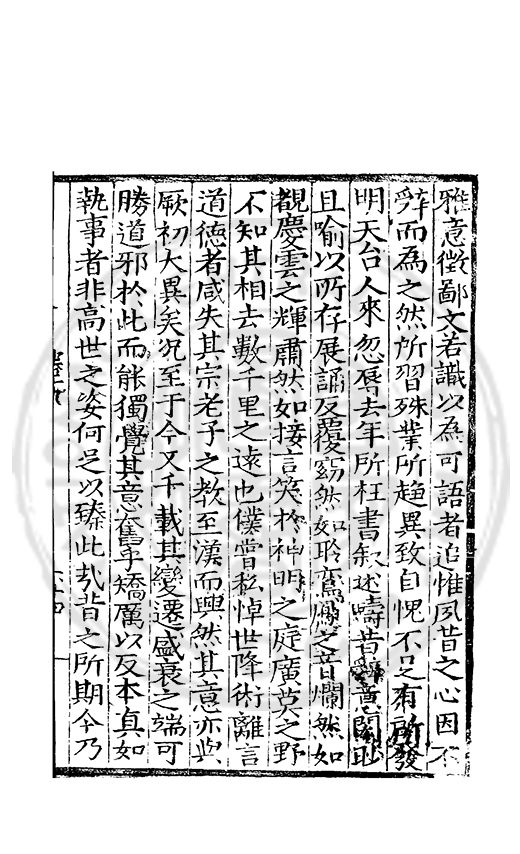 雅意徵鄙文若識以為可語者追惟夙昔之心因不
辤而為之然所習殊業所趋異致自愧不足有所發
明天台人來忽辱去年所枉書叙述疇昔辭意閎肆
且喻以所存展誦反覆竊然如聆鸞鳳之音爛然如
覩慶雲之輝肅然如接言笑於神明之庭廣莫之野
不知其相去數千里之遠也僕嘗私悼世降術離言
道德者咸失其宗老子之教至漢而興然其意亦與
厥初大異矣况至于今又千載其變遷盛衰之端可
勝道邪於此而能獨覺其意奮乎矯厲以反本真如
執事者非高世之姿何足以臻此㢤昔之所期今乃